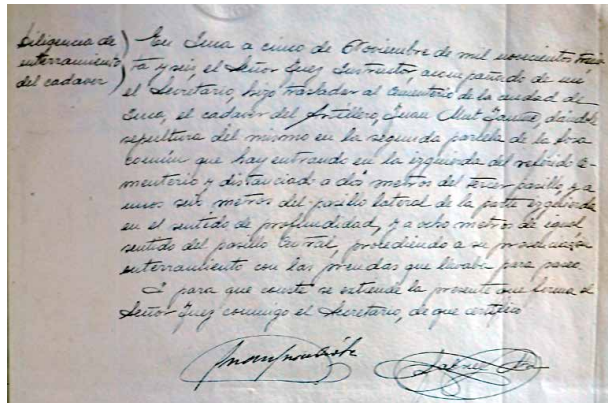 Diligencia de
enterramiento
del cadaver
En Inca a cinco de Noviembre de mil novecientos trein-
ta y seis, el Señor Juez Instructor, acompañado de mi
el Secretario, hizo trasladar al cementerio de la ciudad de
Inca, el cadaver del Artillero, Juan Mut dándole
sepultura del mismo en la segunda parcela de la fosa
común que hay entrando en la izquierda del referido ce-
menterio y distanciado a dos metros del tercer pasillo, y a
unos seis metros del pasillo lateral de la parte izquierda
en el sentido de profundidad, y a ocho metros de igual
sentido del pasillo central, procediendo a su
enterramiento con las prendas que llevaba para paseo.
Y para que conste se extiende la presente que firma el
Señor Juez conmigo el Secretario, de que certifico